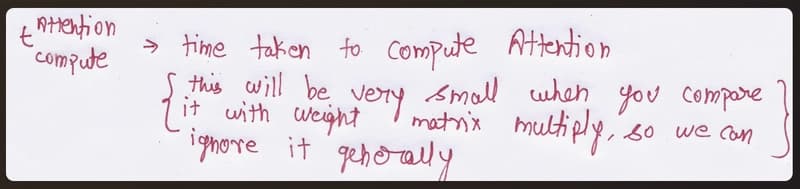 t Attention compute → time taken to compute Attention
{ this will be very small when you compare
it with weight matrix multiply, so we can
ignore it generally }